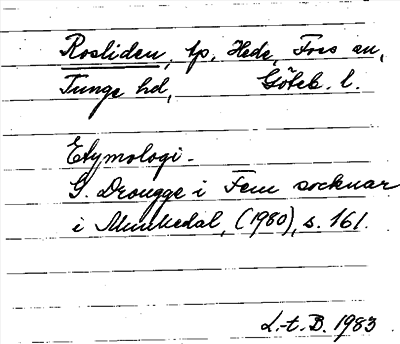 Rosliden, tp, Hede, Foss sn,
Tunge hd, Göteb. l.
Etymologi.
G. Drougge i Fem socknar
i Munkedal, (1980), s. 161.
L.-t. B. 1983